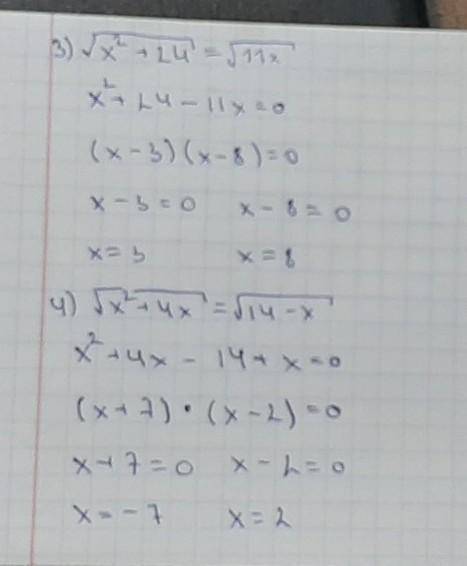 3) √(x² + 24) = √(11x)
x² + 24 - 11x = 0
(x - 3)(x - 8) = 0
x - 3 = 0 x - 8 = 0
x = 3 x = 8
4) √(x² + 4x) = √(14 - x)
x² + 4x - 14 + x = 0
(x + 7) · (x - 2) = 0
x + 7 = 0 x - 2 = 0
x = -7 x = 2